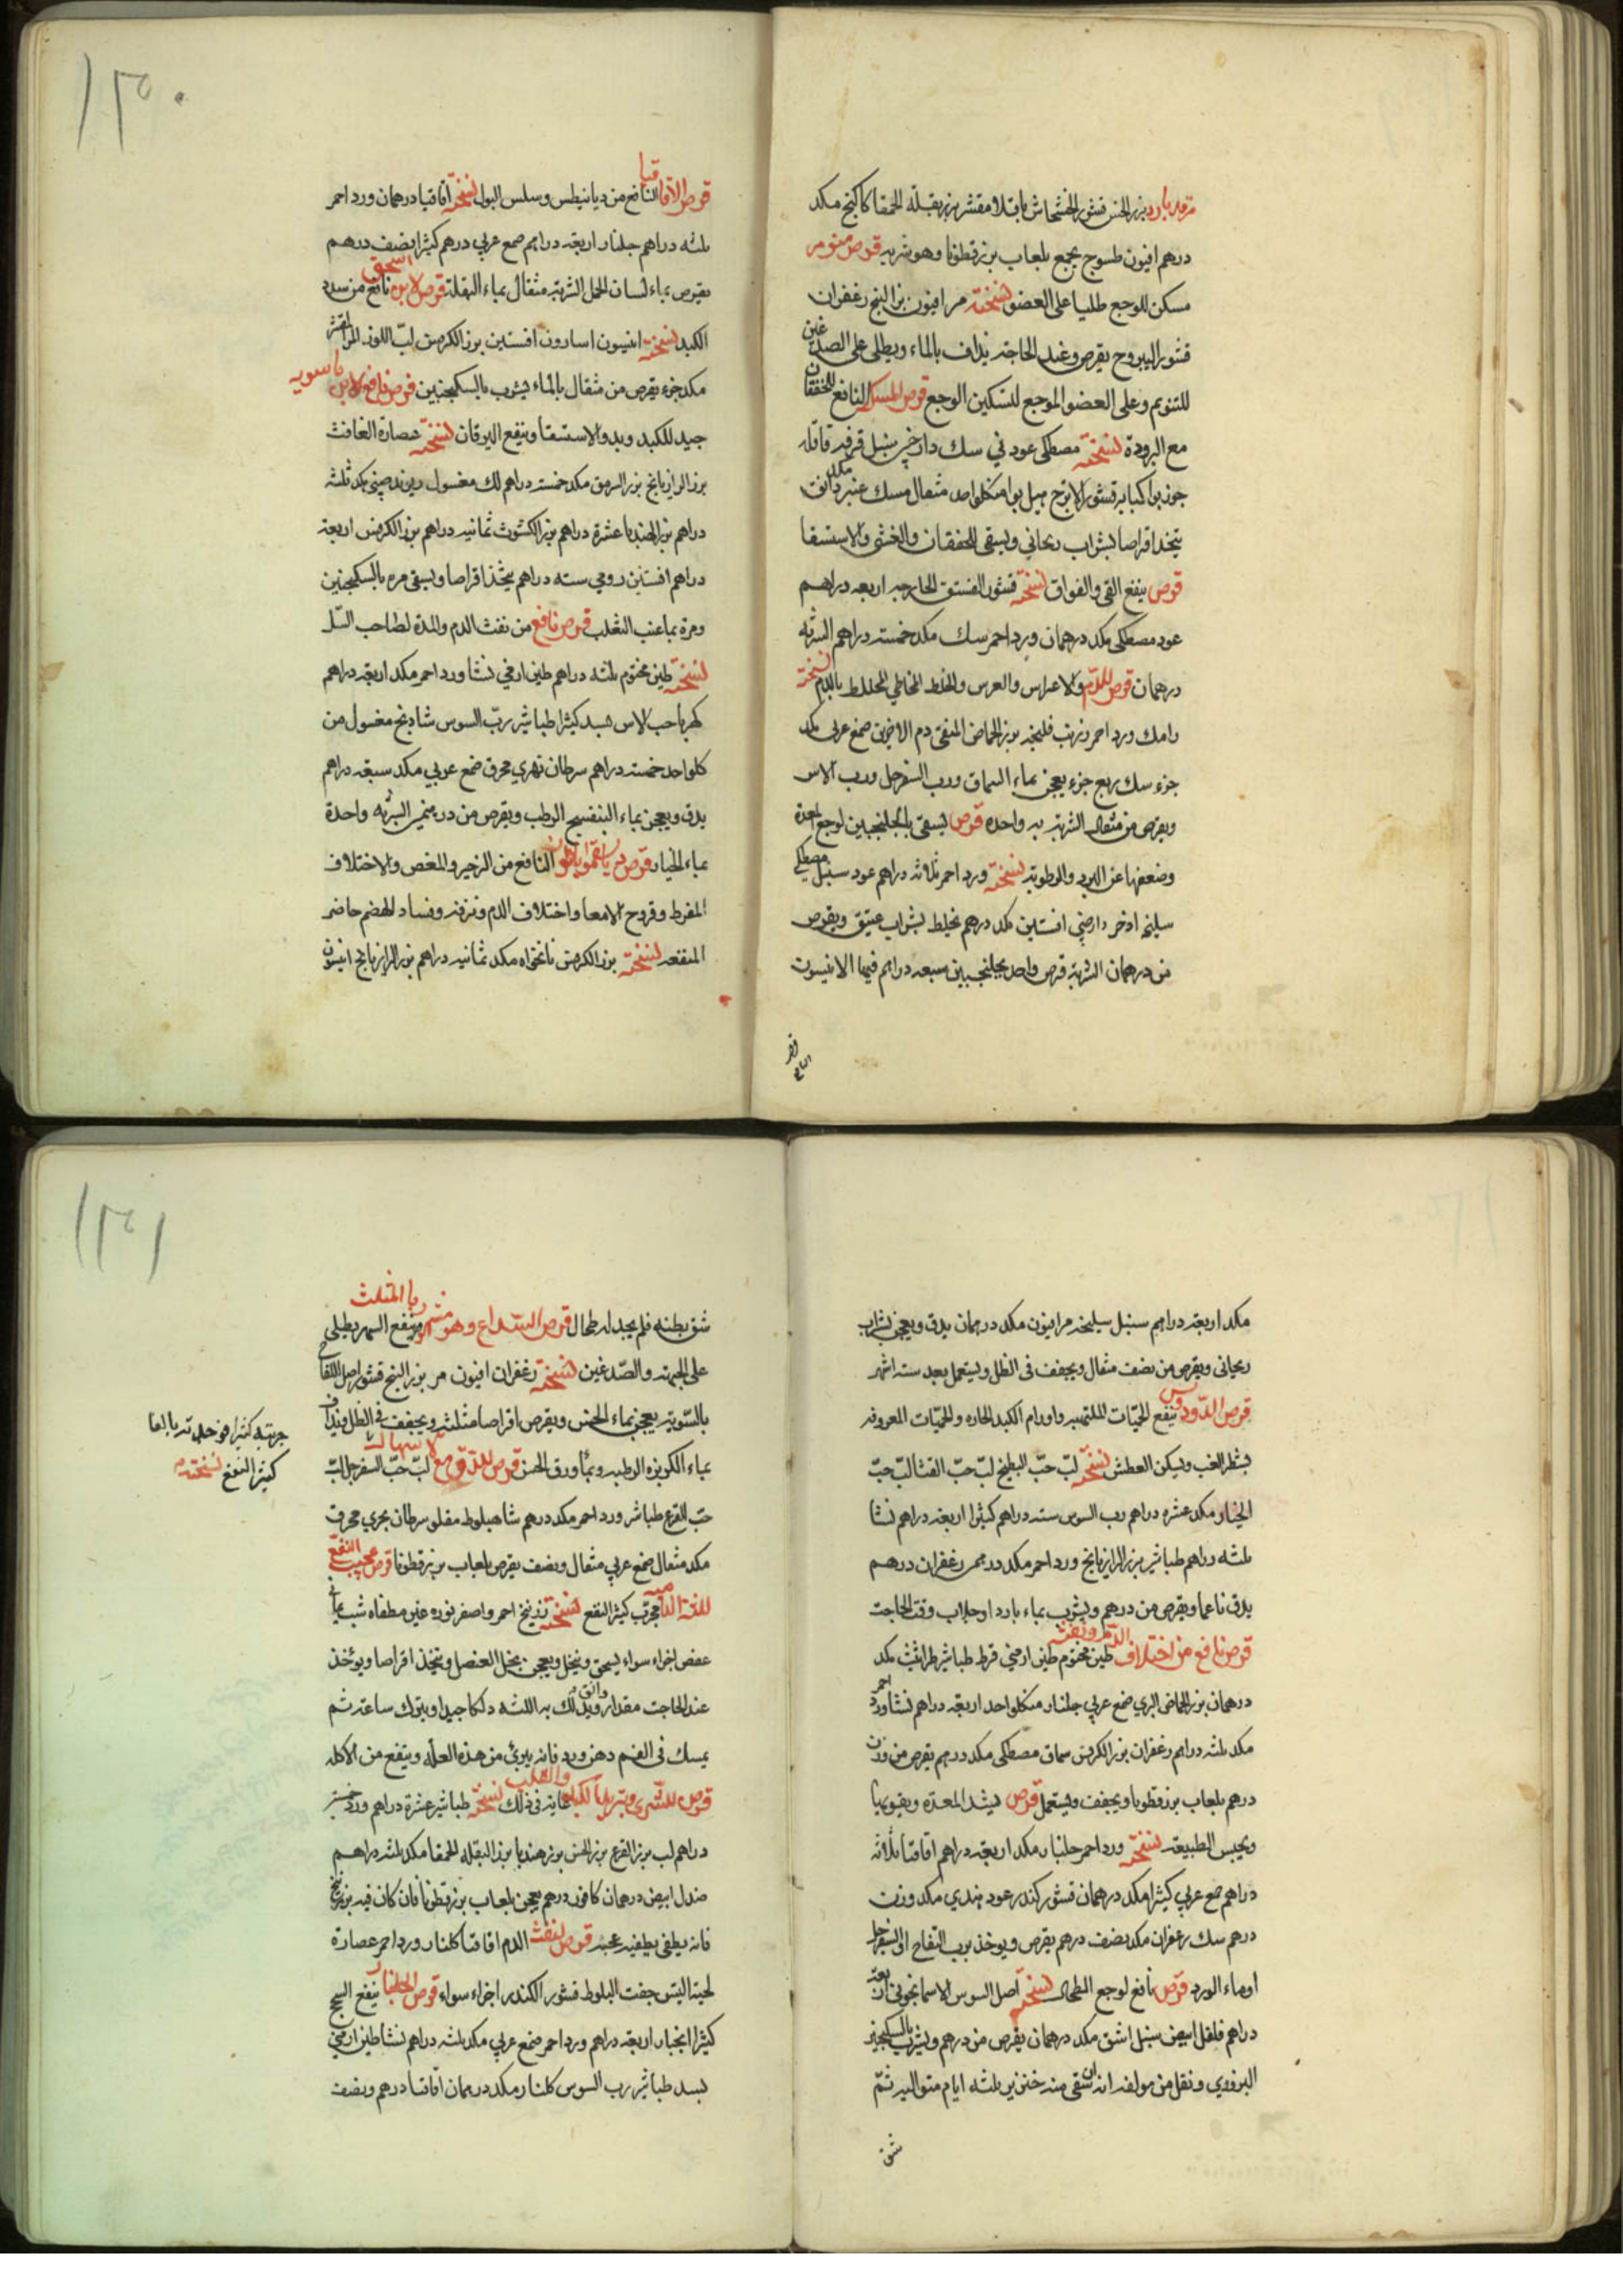 بزر الخس قشور الخشخاش باقلا مقشر بزر بقلة الحمقا كاكنج مكد
درهم افيون طسوج يجمع بلعاب بزرقطونا وهو شربه قرص منوم
مسكن للوجع طليا على العضو نسخته مر افيون بزر البنج زعفران
قشور اليبروح يقرص وعند الحاجة يذاف بالماء ويطلى على الصدغين
للتنويم وعلى العضو الموجع لتسكين الوجع قرص المسك النافع للخفقان
مع البرودة نسخته مصطكى عود ني سك دارصيني سنبل قرفه قاقله
جوزبوا كبابه قشور الاترج هيل بوا من كلواحد مثقال مسك عنبر مكد دانق
يتخذ اقراصا بشراب ريحاني ويسقى للخفقان والغشي والاستسقا
قرص ينفع القي والفواق نسخته قشور الفستق الخارجه اربعه دراهم
عود مصطكى مكد درهمان ورد احمر سك مكد خمسته دراهم الشربه
درهمان قرص للدم والاعراس والخلط المخاطي المخلط بالدم نسخته
رامك ورد احمر بزر الحماض المنقى دم الاخوين صمغ عربي مكد
جزء سك ربع جزء يعجن بماء السماق ورب السفرجل ورب الاس
ويقرص من مثقال الشربة واحده قرص يسقى بالجلنجبين لوجع المعدة
وضعفها عن البرد والرطوبة نسخته ورد احمر ثلاثه دراهم عود سنبل مصطكى
سليخه اذخر دارصيني افسنتين مكد درهم يخلط بشراب عتيق ويقرص
من درهمان الشربة قرص واحد بجلنجبين سبعه دراهم فيها الانيسون
١٣٠
قرص الاقاقيا النافع من ديانيطس وسلس البول نسخته اقاقيا درهمان ورد احمر
ثلثه دراهم جلنار اربعه دراهم صمغ عربي درهم كثيرا نصف درهم
يقرص بماء لسان الحمل الشربة مثقال بماء البقلة قرص لابن اسحق نافع من سدد
الكبد نسخته انيسون اسارون افسنتين بزر الكرفس لب اللوز المر المقشر
مكد جزء يقرص من مثقال بالماء يشرب بالسكنجبين قرص نافع لابن ماسويه
جيد للكبد وبدو الاستسقا وينفع اليرقان نسخته عصارة الغافث
بزر الرازيانج بزر السرمق مكد خمسته دراهم لك مغسول ريوند صيني مكد ثلثه
دراهم بزر الهندبا عشرة دراهم بزر الكشوث ثمانيه دراهم بزر الكرفس اربعة
دراهم افسنتين رومي سته دراهم يتخذ اقراصا ويسقى مره بالسكنجبين
ومرة بماء عنب الثعلب قرص نافع من نفث الدم والمدة لصاحب السل
نسخته طين مختوم ثلثه دراهم طين ارمني نشا ورد احمر مكد اربعه دراهم
كهربا حب الاس بسد كثيرا طباشير رب السوس شادنج مغسول من
كلواحد خمسته دراهم سرطان نهري محرق صمغ عربي مكد سبعه دراهم
يدق ويعجن بماء البنفسج الرطب ويقرص من درهمين الشربه واحدة
بماء الخيار قرص النافع من الزحير والمغص والاختلاف
المفرط وقروح الامعا واختلاف الدم ونزفه وفساد الهضم حاضر
المنفعه نسخته بزر الكرفس نانخواه مكد ثمانيه دراهم بزر الرازيانج انيسون
مكد اربعه دراهم سنبل سليخه مر افيون مكد درهمان يدق ويعجن بشراب
ريحاني ويقرص من نصف مثقال ويجفف في الظل ويستعمل بعد سته اشهر
ينفع الحميات الملتهبه واورام الكبد الحاره والحميات المعروفه
بشطر الغب ويسكن العطش نسخته لب حب البطيخ لب حب القثا لب حب
الخيار مكد عشره دراهم رب السوس سته دراهم كثيرا اربعه دراهم نشا
ثلثه دراهم طباشير بزر الرازيانج ورد احمر مكد درهمين زعفران درهم
يدق ناعما ويقرص من درهم ويشرب بماء بارد او جلاب وقت الحاجت
قرص نافع من اختلاف الدم ونفثه طين مختوم طين ارمني قرط طباشير طراثيث مكد
درهمان بزر الحماض البري صمغ عربي جلنار من كلواحد اربعه دراهم نشا ورد احمر
مكد ثلثه دراهم زعفران بزر الكرفس سماق مصطكى مكد درهم يقرص من وزن
درهم بلعاب بزرقطونا ويجفف ويستعمل قرص ليشد المعدة ويقويها
ويحبس الطبيعه نسخته ورد احمر جلنار مكد اربعه دراهم اقاقيا ثلاثه
دراهم صمغ عربي كثيرا مكد درهمان قشور كندر عود هندي مكد وزن
درهم سك زعفران مكد نصف درهم يقرص ويوخذ برب التفاح او السفرجل
او ماء الورد قرص نافع لوجع الطحال نسخته اصل السوس الاسمانجوني اربعة
دراهم فلفل ابيض سنبل اشق مكد درهمان يقرص من درهم ويشرب بالسكنجبين
البزوري ونقل من مولفه انه سقى منه خنزير ثلثه ايام متواليه ثم
شق
١٣١
شق بطنه فلم يجد له طحال قرص الصداع وهو مشهور بالمثلث وينفع السهر يطلى
على الجبهه والصدغين نسخته زعفران افيون مر بزر البنج قشور اصل اللفاح
بالسويه يعجن بماء الخس ويقرص اقراصا مثلثه ويجفف في الظل ويذاف
بماء الكزبره الرطبه وماء ورق الخس قرص للدق مع الاسهال لب حب السفرجل لب
حب القرع طباشير ورد احمر مكد درهم شاهبلوط مقلو سرطان بحري محرق
مكد مثقال صمغ عربي مثقال ونصف يقرص بلعاب بزرقطونا قرص عجيب النفع
للثة الداميه مجرب كثير النفع نسخته زرنيخ احمر واصفر نوره غير مطفاه شب يماني
عفص اجزاء سواء يسحق وينخل ويعجن بخل العنصل ويتخذ اقراصا ويؤخذ
عند الحاجت مقدار دانق ويدلك به اللثه دلكا جيدا ويترك ساعته ثم
يمسك في الفم دهن ورد فانه يبرئ من هذه العله وينفع من الاكله
قرص للشرى وتبريد الكبد والقلب غايه في ذلك نسخته طباشير عشرة دراهم ورد خمسة
دراهم لب بزر القرع بزر الخس بزر هندبا بزر البقله الحمقا مكد ثلثه دراهم
صندل ابيض درهمان كافور درهم يعجن بلعاب بزرقطونا فان كان فيه بزر بنج
فانه يطفي بطفيه عجيبه قرص لنفث الدم اقاقيا كلنار ورد احمر عصارة
لحية التيس جفت البلوط قشور الكندر اجزاء سواء قرص الجلنار ينفع السحج
كثيرا انجبار اربعه دراهم ورد احمر صمغ عربي مكد ثلثه دراهم نشا طين ارمني
بسد طباشير رب السوس كلنار مكد درهمان اقاقيا درهم ونصف
كثير النفع نسخته